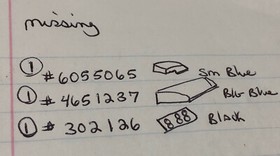 missing
① #6055065 sm Blue
① #4651237 Big Blue
① #302126 888 Black